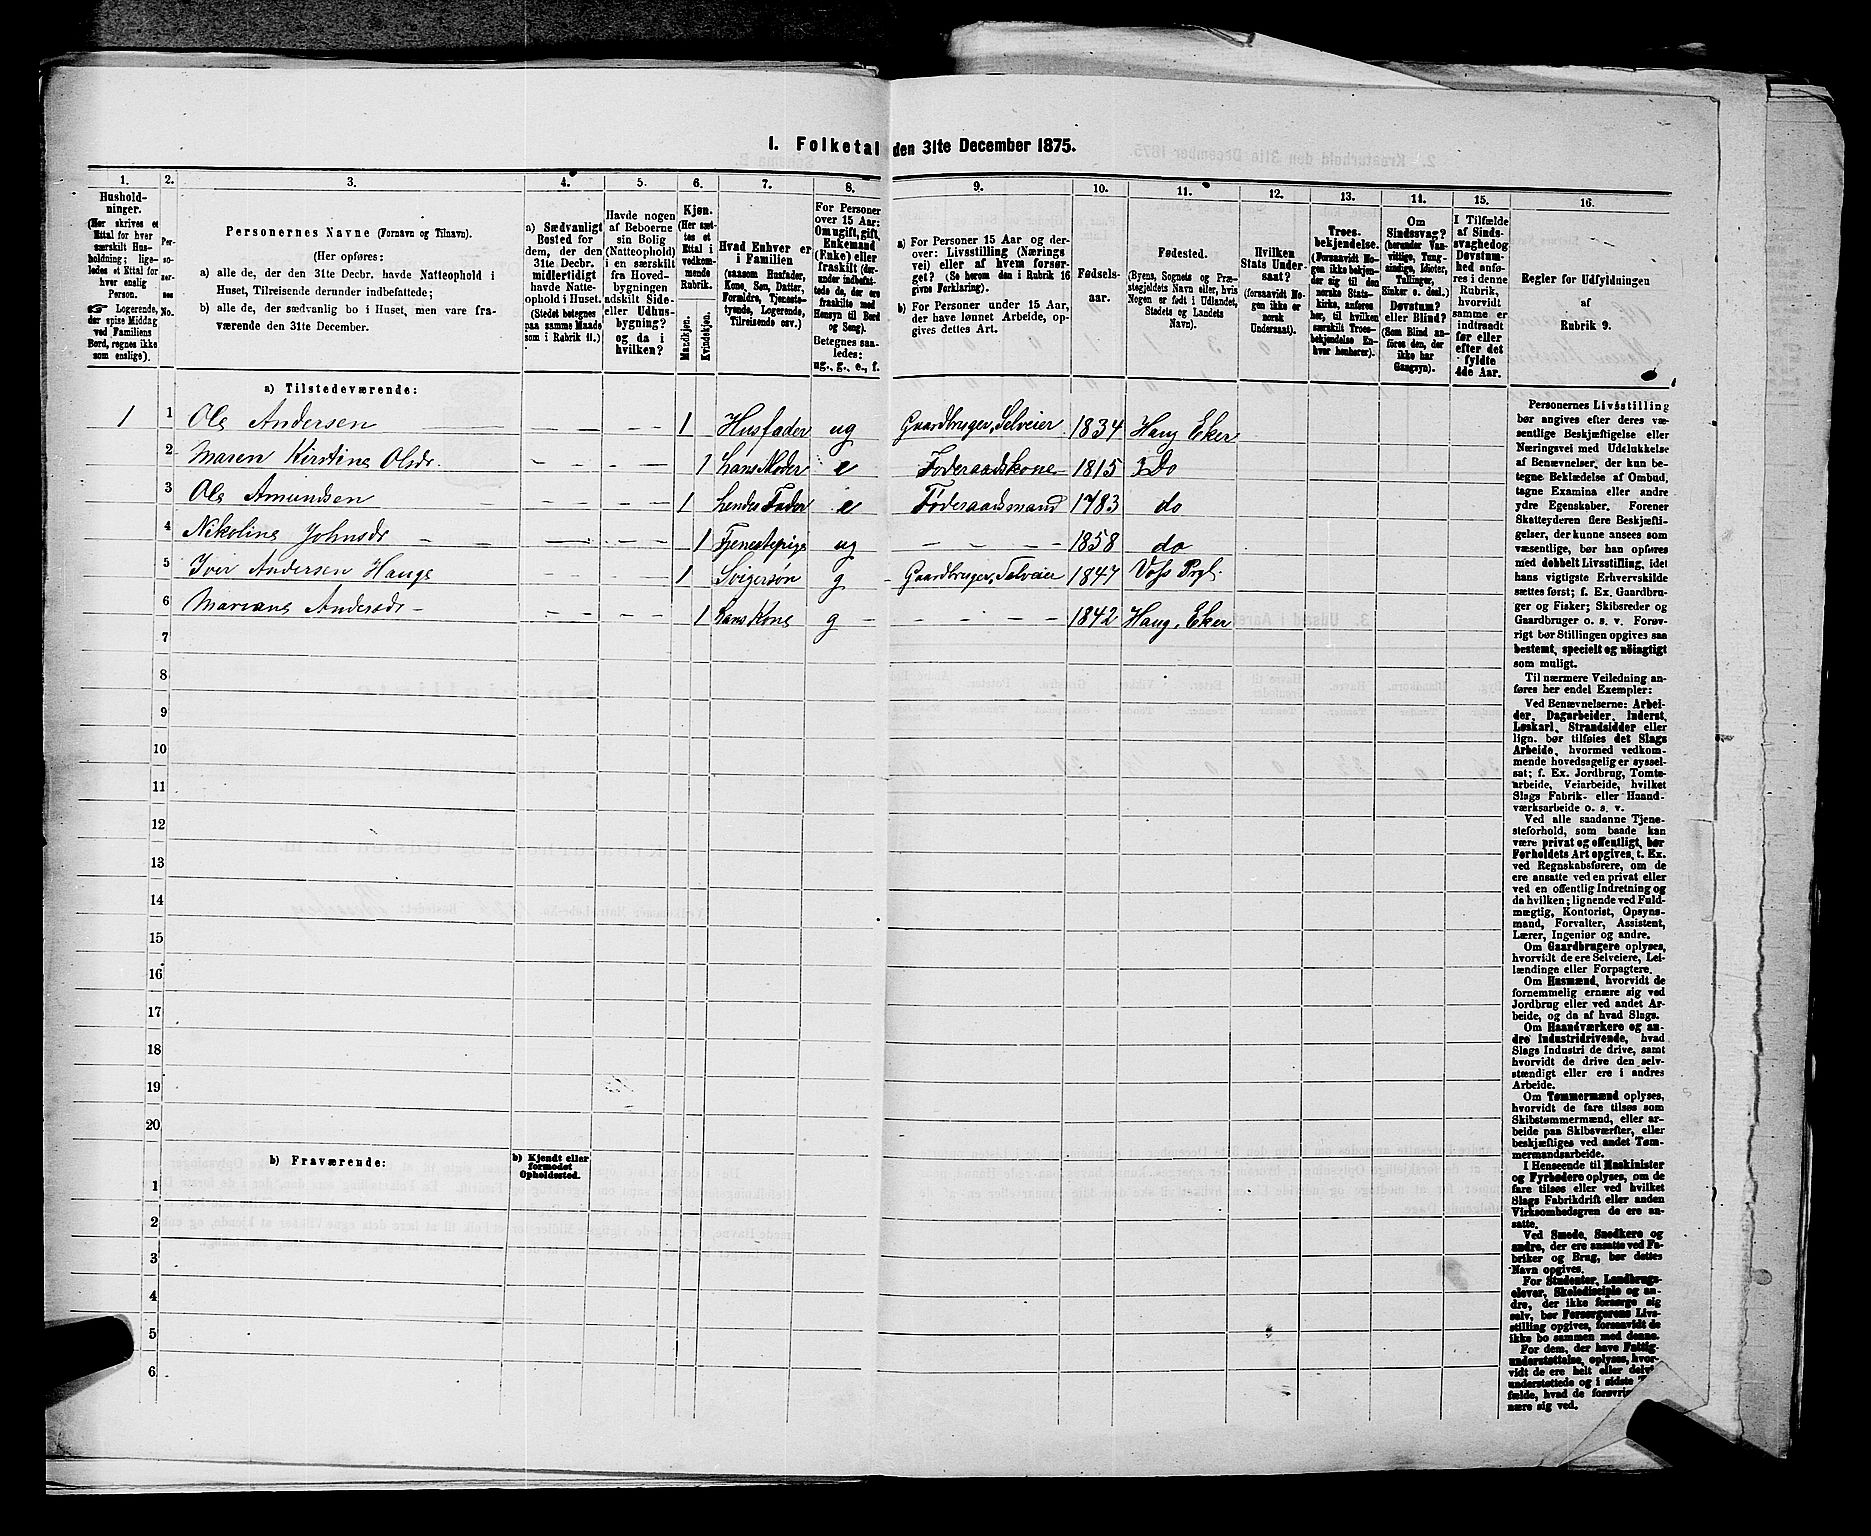 1. Folketal den 31te December 1875.
1.
Hushold-
ninger.
(Her skrives et
Ettal for hver
særskilt Hus-
holdning; lige-
ledes et Ettal for
hver enslig
Person.
Logerende,
der spise Middag
ved Familiens
Bord, regnes ikke
som enslige).
2.
Per-
so-
ner-
nes
No.
3.
Personernes Navne (Fornavn og Tilnavn).
(Her opføres:
a) alle de, der den 31te Decbr. havde Natteophold i
Huset, Tilreisende derunder indbefattede;
b) alle de, der sædvanlig bo i Huset, men vare fra-
værende den 31te December.
4.
a) Sædvanligt
Bosted for
dem, der den
31te Decbr.
midlertidigt
havde Natte-
ophold i Huset.
(Stedet betegnes
paa samme Maade
som i Rubrik 11.)
5.
Havde nogen
af Beboerne
sin Bolig
(Natteophold)
i en særskilt
fra Hoved-
bygningen
adskilt Side-
eller Udhus-
bygning?
og da i
hvilken?
6.
Kjøn.
(Her sæt-
tes et
Ettal i
vedkom-
mende
Rubrik.
Mandkjøn.
Kvindekjøn.
7.
Hvad Enhver er
i Familien
(saasom Husfader,
Kone, Søn, Datter,
Forældre, Tjeneste-
tyende, Logerende,
Tilreisende osv.)
8.
For Personer
over 15 Aar:
Om ugift, gift,
Enkemand
(Enke) eller
fraskilt (der-
under indbefat-
tede de, der ere
fraskilte med
Hensyn til Bord
og Seng).
Betegnes saa-
ledes:
ug., g., e., f.
9.
a) For Personer 15 Aar og der-
over: Livsstilling (Nærings
vei) eller af hvem forsør-
get? (Se herom den i Rubrik 16
givne Forklaring).
b) For Personer under 15 Aar,
der have lønnet Arbeide, op-
gives dettes Art.
10.
Fødsels-
aar.
11.
Fødested.
(Byens, Sognets og Præ-
stegjeldets Navn eller, hvis
Nogen er født i Udlandet,
Stedets og Landets
Navn).
12.
Hvilken
Stats Under-
saat?
(forsaavidt No-
gen ikke er
norsk
Undersaat).
13.
Troes-
bekjendelse.
(Forsaavidt No-
gen ikke bekjen-
der sig til den
norske Stats-
kirke, anføres
her, til hvilken
særskilt Troes-
bekjendelse En-
hver henhører).
14.
Om
Sindssvag?
(herunder Van-
vittige, Tung-
sindige, Idioter,
Tullinger,
Sinker o. desl.)
Døvstum?
eller Blind?
(Som Blind an-
føres den, der
ikke har
Gangsyn).
15.
I Tilfælde
af Sinds-
svaghed og
Døvstum-
hed anfø-
res i denne
Rubrik,
hvorvidt
samme er
indtraadt
før eller
efter det
fyldte
4de Aar.
16.
Regler for Udfyldningen
af
Rubrik 9.
a) Tilstedeværende:
1 1 Ole Andersen — — — — 1 Husfader ug Gaardbruger, Selveier 1834 Haug Eker
2 Maren Kirstine Olsdr. — — — — 1 hans Moder e Foderaadskone 1815 Do
3 Ole Amundsen — — — — 1 hendes Fader e Føderaadsmand 1783 do
4 Nikoline Johnsdr — — — — 1 Tjenestepige ug — — — — 1858 do
5 Iver Andersen Hauge — — — — 1 Svigersøn g Gaardbruger, Selveier 1847 Voss Prgl.
6 Mariane Andersdr — — — — 1 hans Kone g — — — — 1842 Haug, Eker
7
8
9
10
11
12
13
14
15
16
17
18
19
20
b) Fraværende:
b) Kjendt eller
formodet
Opholdssted.
1
2
3
4
5
6
Personernes Livsstilling
bør angives efter deres væ-
sentlige Beskjæftigelse eller
Næringsvei med Udelukkelse
af Benævnelser, der kun be-
tegne Beklædelse af Ombud,
tagne Examina eller andre
ydre Egenskaber. Forener
Skatteyderen flere Beskjæfti-
gelser, der kunne ansees som
væsentlige, bør han opføres
med dobbelt Livsstilling, idet
hans vigtigste Erhvervskilde
sættes først; f. Ex. Gaardbru-
ger og Fisker; Skibsreder og
Gaardbruger o. s. v. Forøv-
rigt bør Stillingen opgives saa
bestemt, specielt og nöiagtigt
som muligt.
Til nærmere Veiledning an-
føres her endel Exempler:
Ved Benævnelserne: Arbei-
der, Dagarbeider, Inderst,
Løskarl, Strandsidder eller
lign. bør tilføies det Slags
Arbeide, hvormed vedkom-
mende hovedsagelig er syssel-
sat; f. Ex. Jordbrug, Tomte-
arbeide, Veiarbeide, hvilket
Slags Fabrik- eller Haand-
værksarbeide o. s. v.
Ved alle saadanne Tjene-
steforhold, som baade kan
være privat og offentligt, bør
Forholdets Art opgives, t. Ex.
ved Regnskabsførere, om de
ere ansatte ved en privat eller
ved en offentlig Indretning og
da hvilken; lignende ved Fuld-
mægtig, Kontorist, Opsyns-
mand, Forvalter, Assistent,
Lærer, Ingeniør og andre.
Om Gaardbrugere oplyses,
hvorvidt de ere Selveiere, Lei-
lændinge eller Forpagtere.
Om Husmænd, hvorvidt de
fornemmelig ernære sig ved
Jordbrug eller ved andet Ar-
beide, og da af hvad Slags.
Om Haandværkere og an-
dre Industridrivende, hvad
Slags Industri de drive, samt
hvorvidt de drive den selv-
stændigt eller ere i andres
Arbeide.
Om Tømmermænd oplyses,
hvorvidt de fare tilsøs som
Skibstømmermænd, eller ar-
beide paa Skibsværfter, eller
beskjæftiges ved andet Tøm-
mermandsarbeide.
I Henseende til Maskinister
og Fyrbødere oplyses, om de
fare tilsøs eller ved hvilket
Slags Fabrikdrift eller anden
Virksomhedsgren de ere an-
satte.
Ved Smede, Snedkere og
andre, der ere ansatte ved Fa-
briker og Brug, bør dettes
Navn opgives.
For Studenter, Landbrugs-
elever, Skoledisciple og an-
dre, der ikke forsørge sig
selv, bør Forsørgerens Livs-
stilling opgives, forsaavidt de
ikke bo sammen med denne.
For dem, der have Fattig-
understøttelse, oplyses, hvor-
vidt de ere helt eller delvis
understøttede og i sidste
fælde, hvad de forøvri
nære sig ved.